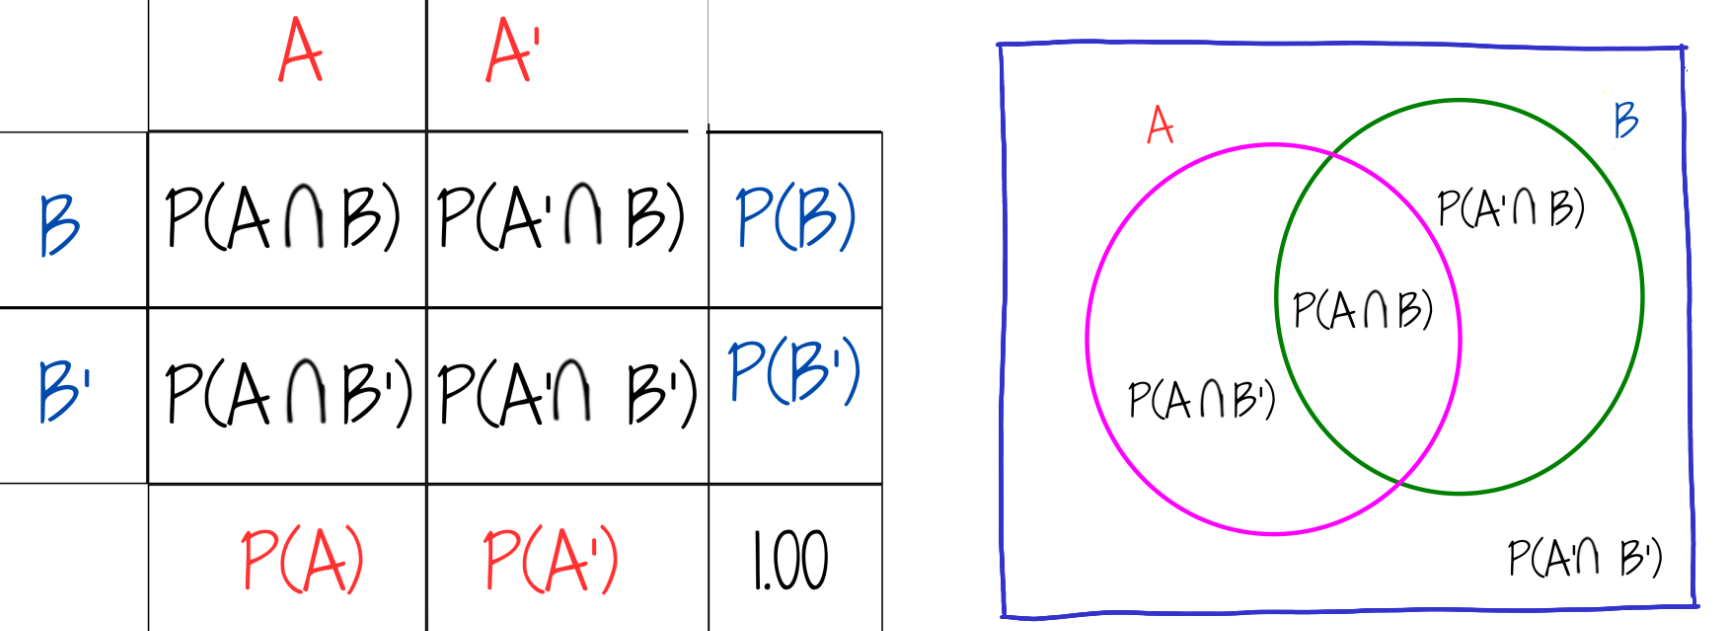 A A'
B P(A∩B) P(A'∩ B) P(B)
B' P(A∩B') P(A'∩ B') P(B')
P(A) P(A') 1.00
A B
P(A'∩ B)
P(A∩B)
P(A∩B')
P(A'∩ B')